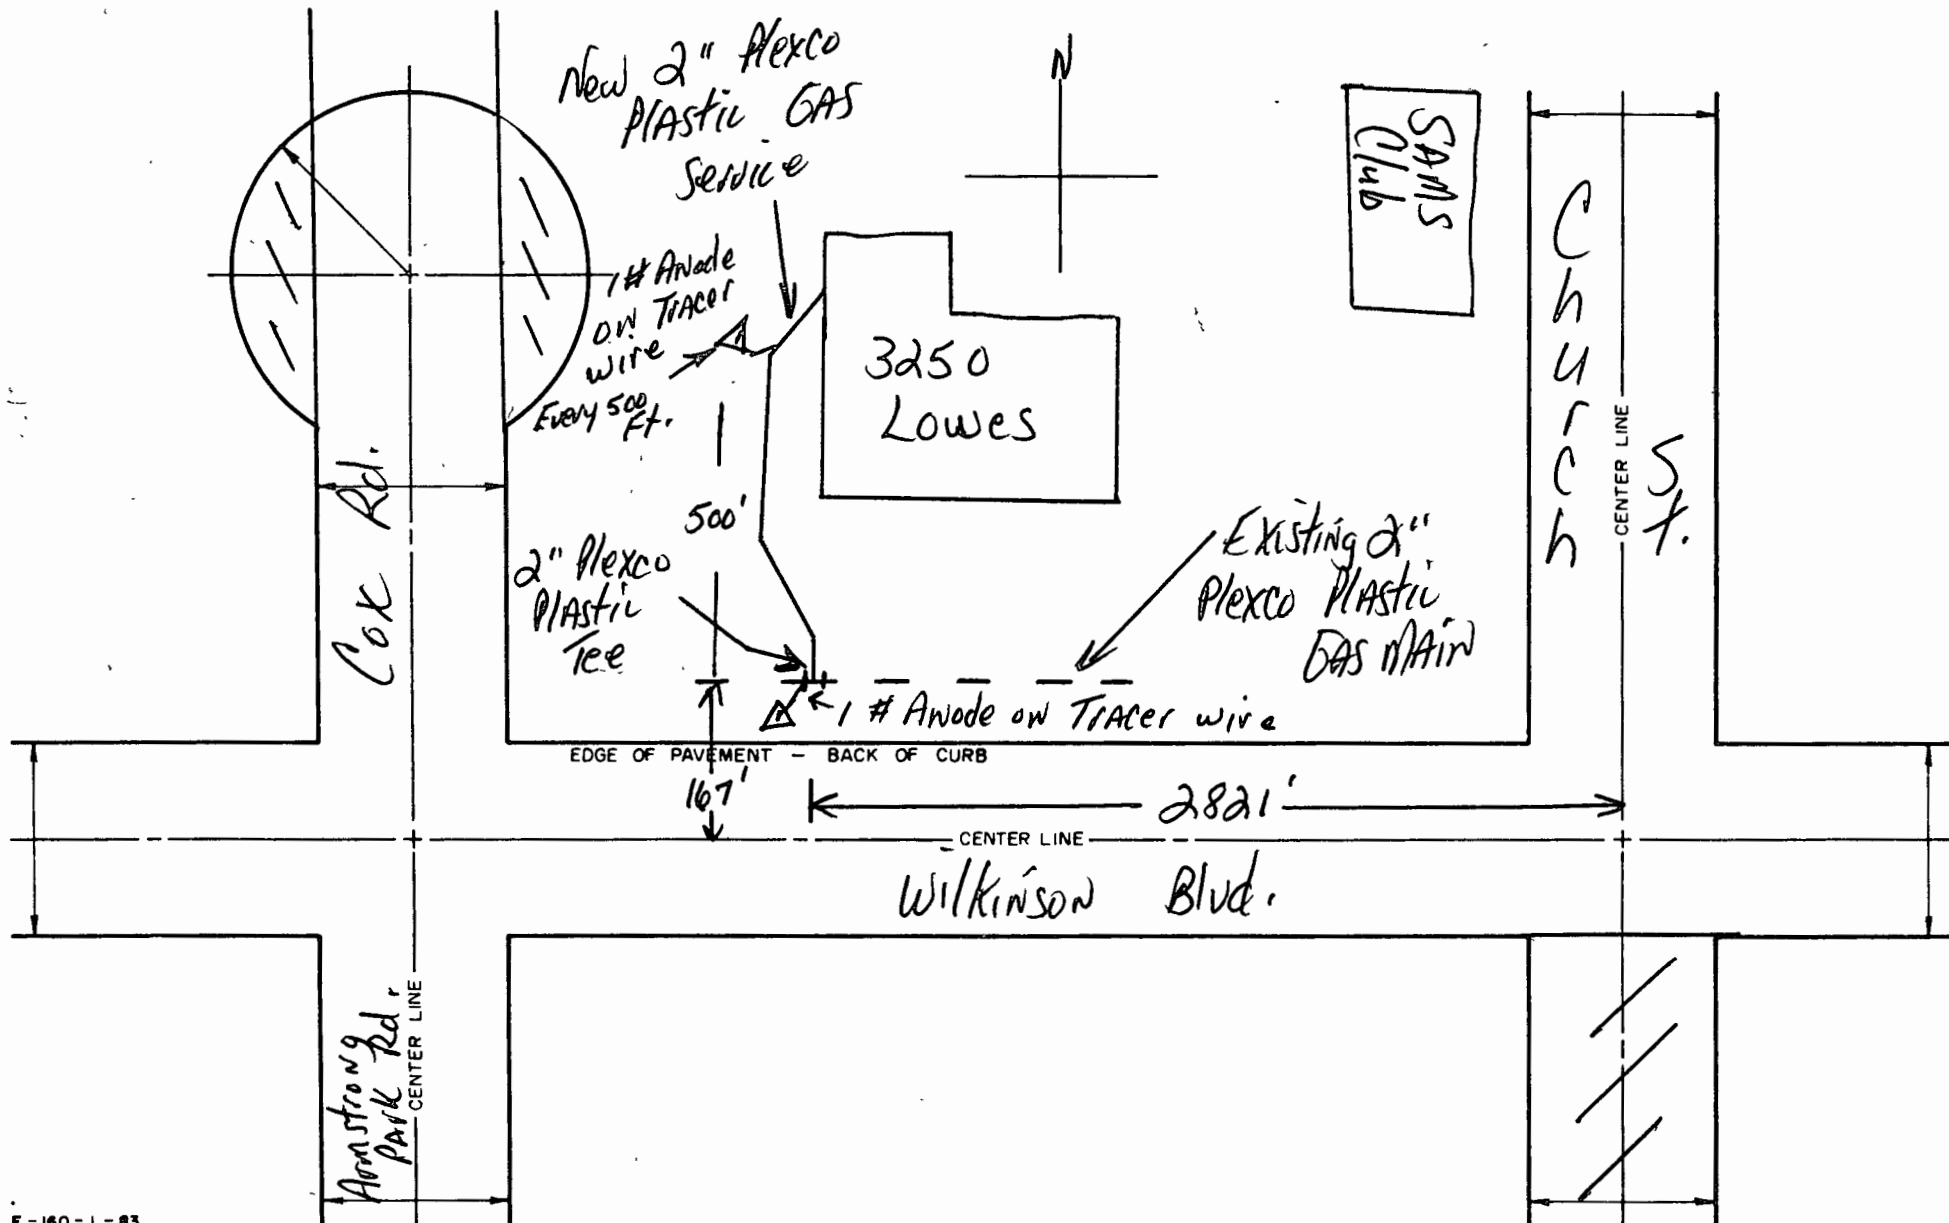 New 2" Plexco
Plastic GAS
Service
N
SAMS
Club
Church
St.
CENTER LINE
1 # Anode
on Tracer
wire
Every 500
Ft.
3250
Lowes
500'
Cox Rd.
2" Plexco
Plastic
Tee
Existing 2"
Plexco Plastic
GAS MAIN
1 # Anode on Tracer wire
EDGE OF PAVEMENT – BACK OF CURB
167'
2821'
CENTER LINE
Wilkinson Blvd.
Armstrong
Park Rd.
CENTER LINE
F-160-1-83